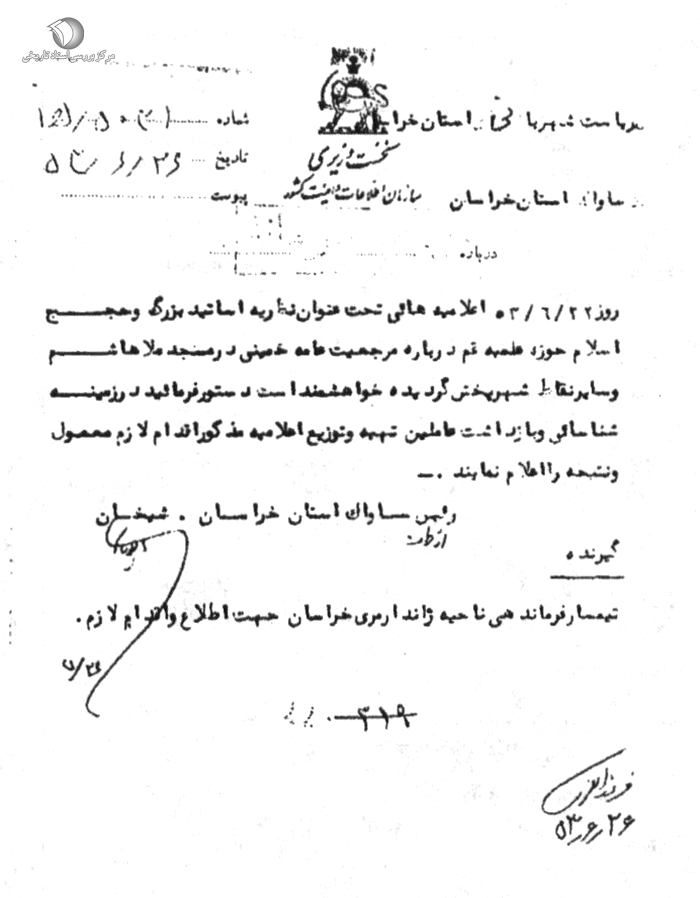 مرکز بررسی اسناد تاریخی
شماره
ریاست شهربانی استان خراسان
نخست وزیری
تاریخ ۵۳/۶/۲۶
ساواک استان خراسان
سازمان اطلاعات و امنیت کشور
پیوست
درباره
روز ۵۳/۶/۲۲ اعلامیه هائی تحت عنوان نظریه اساتید بزرگ وحجج
اسلام حوزه علمیه قم درباره مرجعیت عامه خمینی درمسجد ملاهاشم
وسایرنقاط شهرپخش گردیده خواهشمند است دستورفرمائید درزمینه
شناسائی وبازداشت عاملین تهیه وتوزیع اعلامیه مذکوراقدام لازم معمول
ونتیجه رااعلام نمایند .ـ
رئیس ساواک استان خراسان . شیخان
از طرف
گیرنده
تیمسارفرماندهی ناحیه ژاندارمری خراسان جهت اطلاع واقدام لازم.
۳۱۹
۵۳/۶/۲۶